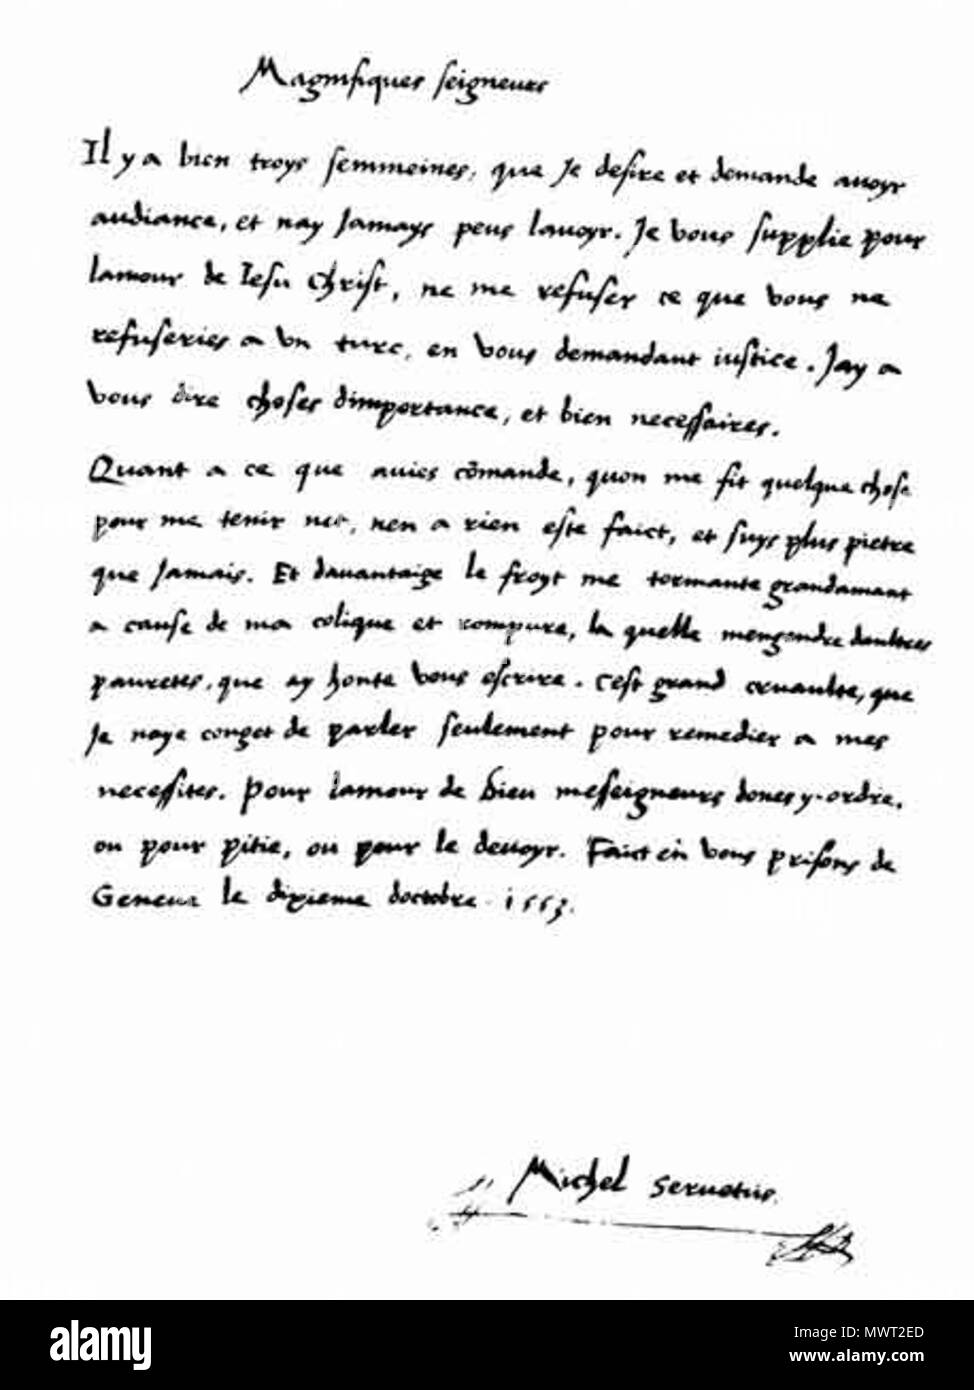 Magnifiques seigneurs
Il y a bien troys semmeines, que Je desire et demande avoyr
audiance, et nay Jamays peus lavoyr. Je vous supplie pour
lamour de Iesu Christ, ne me refuser ce que vous ne
refuseries a vn turc, en vous demandant iustice. Jay a
vous dire choses dimportance, et bien necessaires.
Quant a ce que auies cōmande, quon me fit quelque chose
pour me tenir net, nen a rien este faict, et suys plus pietre
que Jamais. Et dauantaige le froyt me tormante grandamant
a cause de ma colique et rompure, la quelle mengendre daultres
pauretes, que ay honte vous escrire. Cest grand cruaulte, que
Je naye conget de parler seulement pour remedier a mes
necessites. Pour lamour de Dieu messeigneurs dones y ordre,
ou pour pitie, ou pour le deuoyr. Faict en vous prisons de
Geneve le dixieme doctobre 1553.
Michel Seruetus.
alamy
Image ID: MWT2ED
www.alamy.com